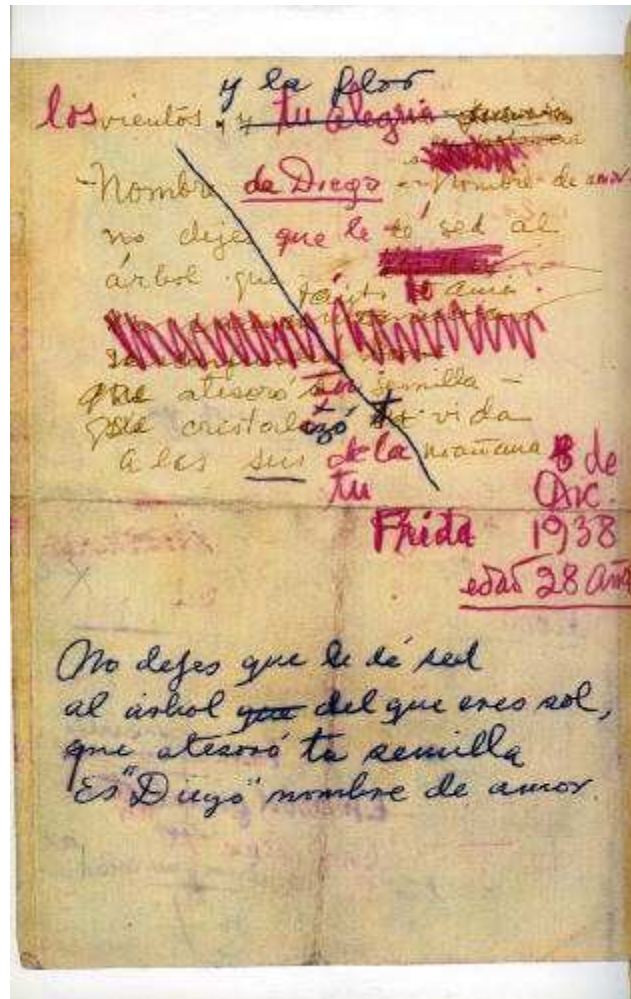 y la flor
los vientos, y tu alegria
-Nombre de Diego - Nombre de amor.
no dejes que le dé sed al
árbol que
tanto te ama.
que atesoró tu semilla -
que cristalizó tu vida
a las seis de la mañana
8 de
Dic.
tu
Frida 1938
edad 28 Años
No dejes que le dé sed
al árbol que del que eres sol,
que atesoró tu semilla
Es "Diego" nombre de amor.